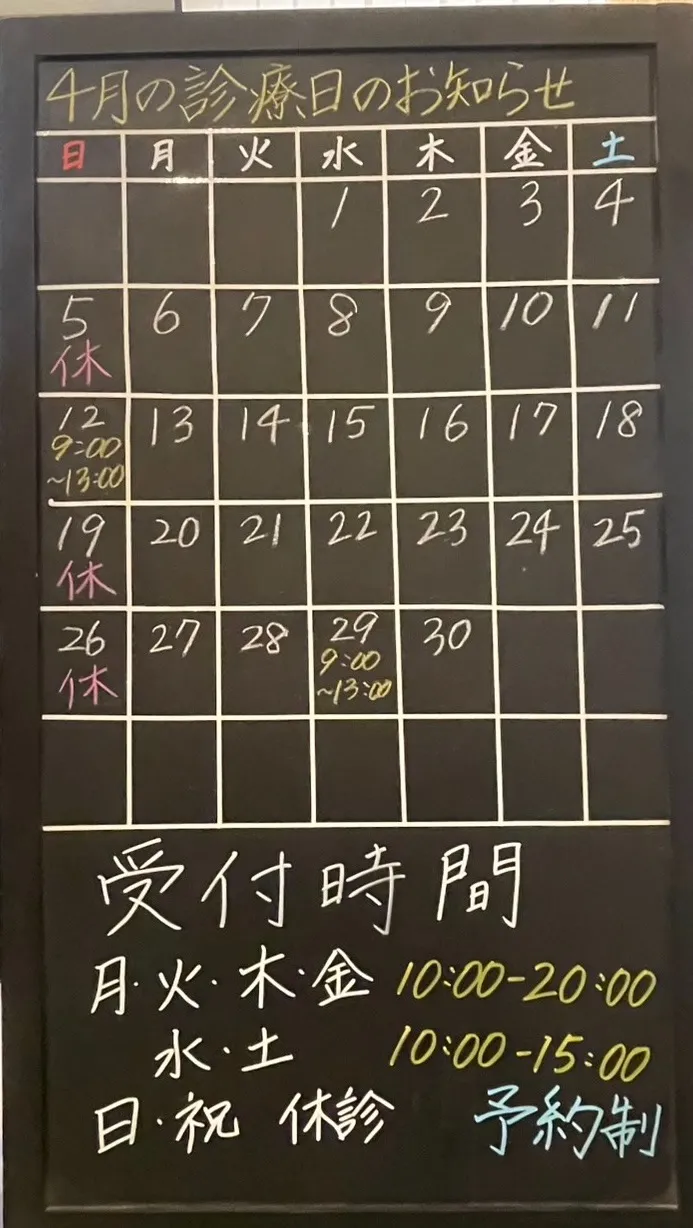 4月の診療日のお知らせ
日 月 火 水 木 金 土
1 2 3 4
5 6 7 8 9 10 11
休
12 13 14 15 16 17 18
9:00
~13:00
19 20 21 22 23 24 25
休
26 27 28 29 30
休 9:00
~13:00
受付時間
月・火・木・金 10:00-20:00
水・土 10:00-15:00
日・祝 休診 予約制